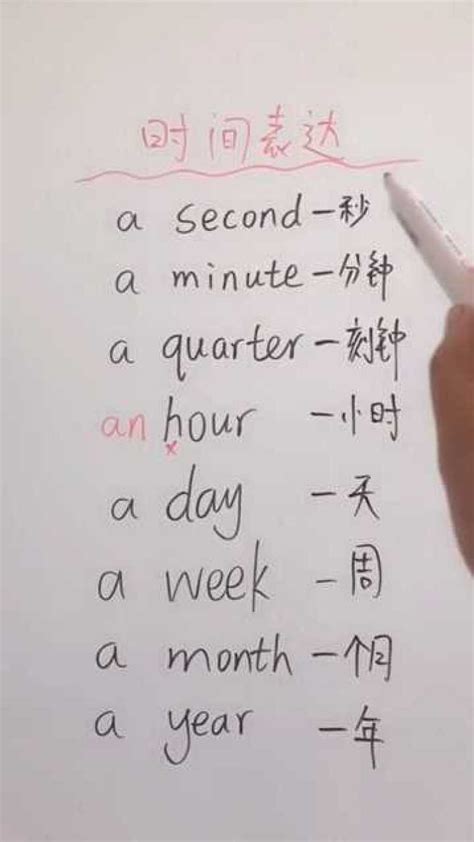 时间表达
a second 一秒
a minute 一分钟
a quarter 一刻钟
an hour 一小时
x
a day 一天
a week 一周
a month 一个月
a year 一年